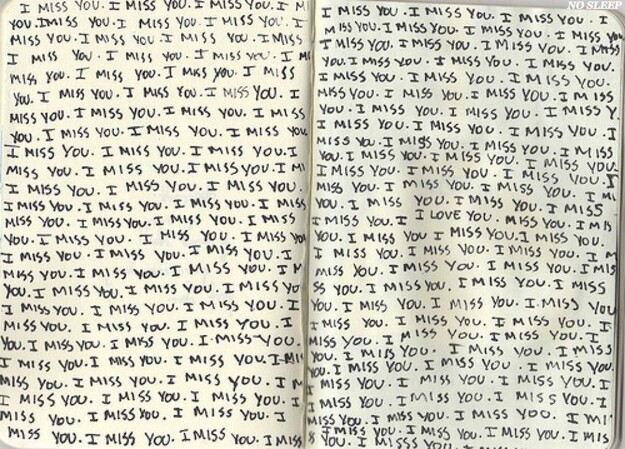 I MISS YOU. I MISS YOU. I MISS YOU. I M
MISS YOU. I MISS YOU. I MISS YOU. I
MISS YOU. I MISS YOU. I MISS YOU. I MISS
I MISS YOU. I MISS YOU. I MISS YOU. I M
MISS YOU. I MISS YOU. I MISS YOU. I MISS
YOU. I MISS YOU. I MISS YOU. I MISS YOU. I
MISS YOU. I MISS YOU. I MISS YOU. I MISS
YOU. I MISS YOU. I MISS YOU. I MISS YOU
I MISS YOU. I MISS YOU. I MISS YOU. I
MISS YOU. I MISS YOU. I MISS YOU. I MI
I MISS YOU. I MISS YOU. I MISS YOU.
MISS YOU. I MISS YOU. I MISS YOU. I MISS
YOU. I MISS YOU. I MISS YOU. I MISS YO
I MISS YOU. I MISS YOU. I MISS YOU. I
MISS YOU. I MISS YOU. I MISS YOU. I M
YOU. I MISS YOU. I MISS YOU. I MISS YO
I MISS YOU. I MISS YOU. I MISS YOU. I
MISS YOU. I MISS YOU. I MISS YOU. I
YOU. I MISS YOU. I MISS YOU. I MISS YOU.
I MISS YOU. I MISS YOU. I MISS YOU. I MIS
MISS YOU. I MISS YOU. I MISS YOU. I M
I MISS YOU. I MISS YOU. I MISS YOU. I
MISS YOU. I MISS YOU. I MISS YOU. I
MISS YOU. I MISS YOU. I MISS YOU. I MISS
NO SLEEP
I MISS YOU. I MISS YOU. I MISS YOU. I
MISS YOU. I MISS YOU. I MISS YOU. I MISS YOU
I MISS YOU. I MISS YOU. I MISS YOU. I MISS
YOU. I MISS YOU. I MISS YOU. I MISS YOU.
I MISS YOU. I MISS YOU. I MISS YOU.
MISS YOU. I MISS YOU. I MISS YOU. I MISS
YOU. I MISS YOU. I MISS YOU. I MISS Y
I MISS YOU. I MISS YOU. I MISS YOU. I
MISS YOU. I MISS YOU. I MISS YOU. I MISS
YOU. I MISS YOU. I MISS YOU. I MISS YOU
I MISS YOU. I MISS YOU. I MISS YOU. I
MISS YOU. I MISS YOU. I MISS YOU. I MI
YOU. I MISS YOU. I MISS YOU. I MISS
I MISS YOU. I I LOVE YOU. MISS YOU. I MIS
YOU. I MISS YOU I MISS YOU. I MISS YOU.
I MISS YOU. I MISS YOU. I MISS YOU. I M
MISS YOU. I MISS YOU. I MISS YOU. I MIS
YOU. I MISS YOU. I MISS YOU. I MISS
YOU. I MISS YOU. I MISS YOU. I MISS YOU
I MISS YOU. I MISS YOU. I MISS YOU. I
MISS YOU. I MISS YOU. I MISS YOU. I
YOU. I MISS YOU. I MISS YOU. I MISS
YOU. I MISS YOU. I MISS YOU. I MISS YOU.
MISS YOU. I MISS YOU. I MISS YOU. I
I MISS YOU. I MISS YOU. I MISS YOU. I
MISS YOU. I MISS YOU. I MISS YOU. I MI
I MISS YOU. I MISS YOU. I MISS YOU. I MIS
YOU. I MISSS YOU. I MISS YOU. I MIS